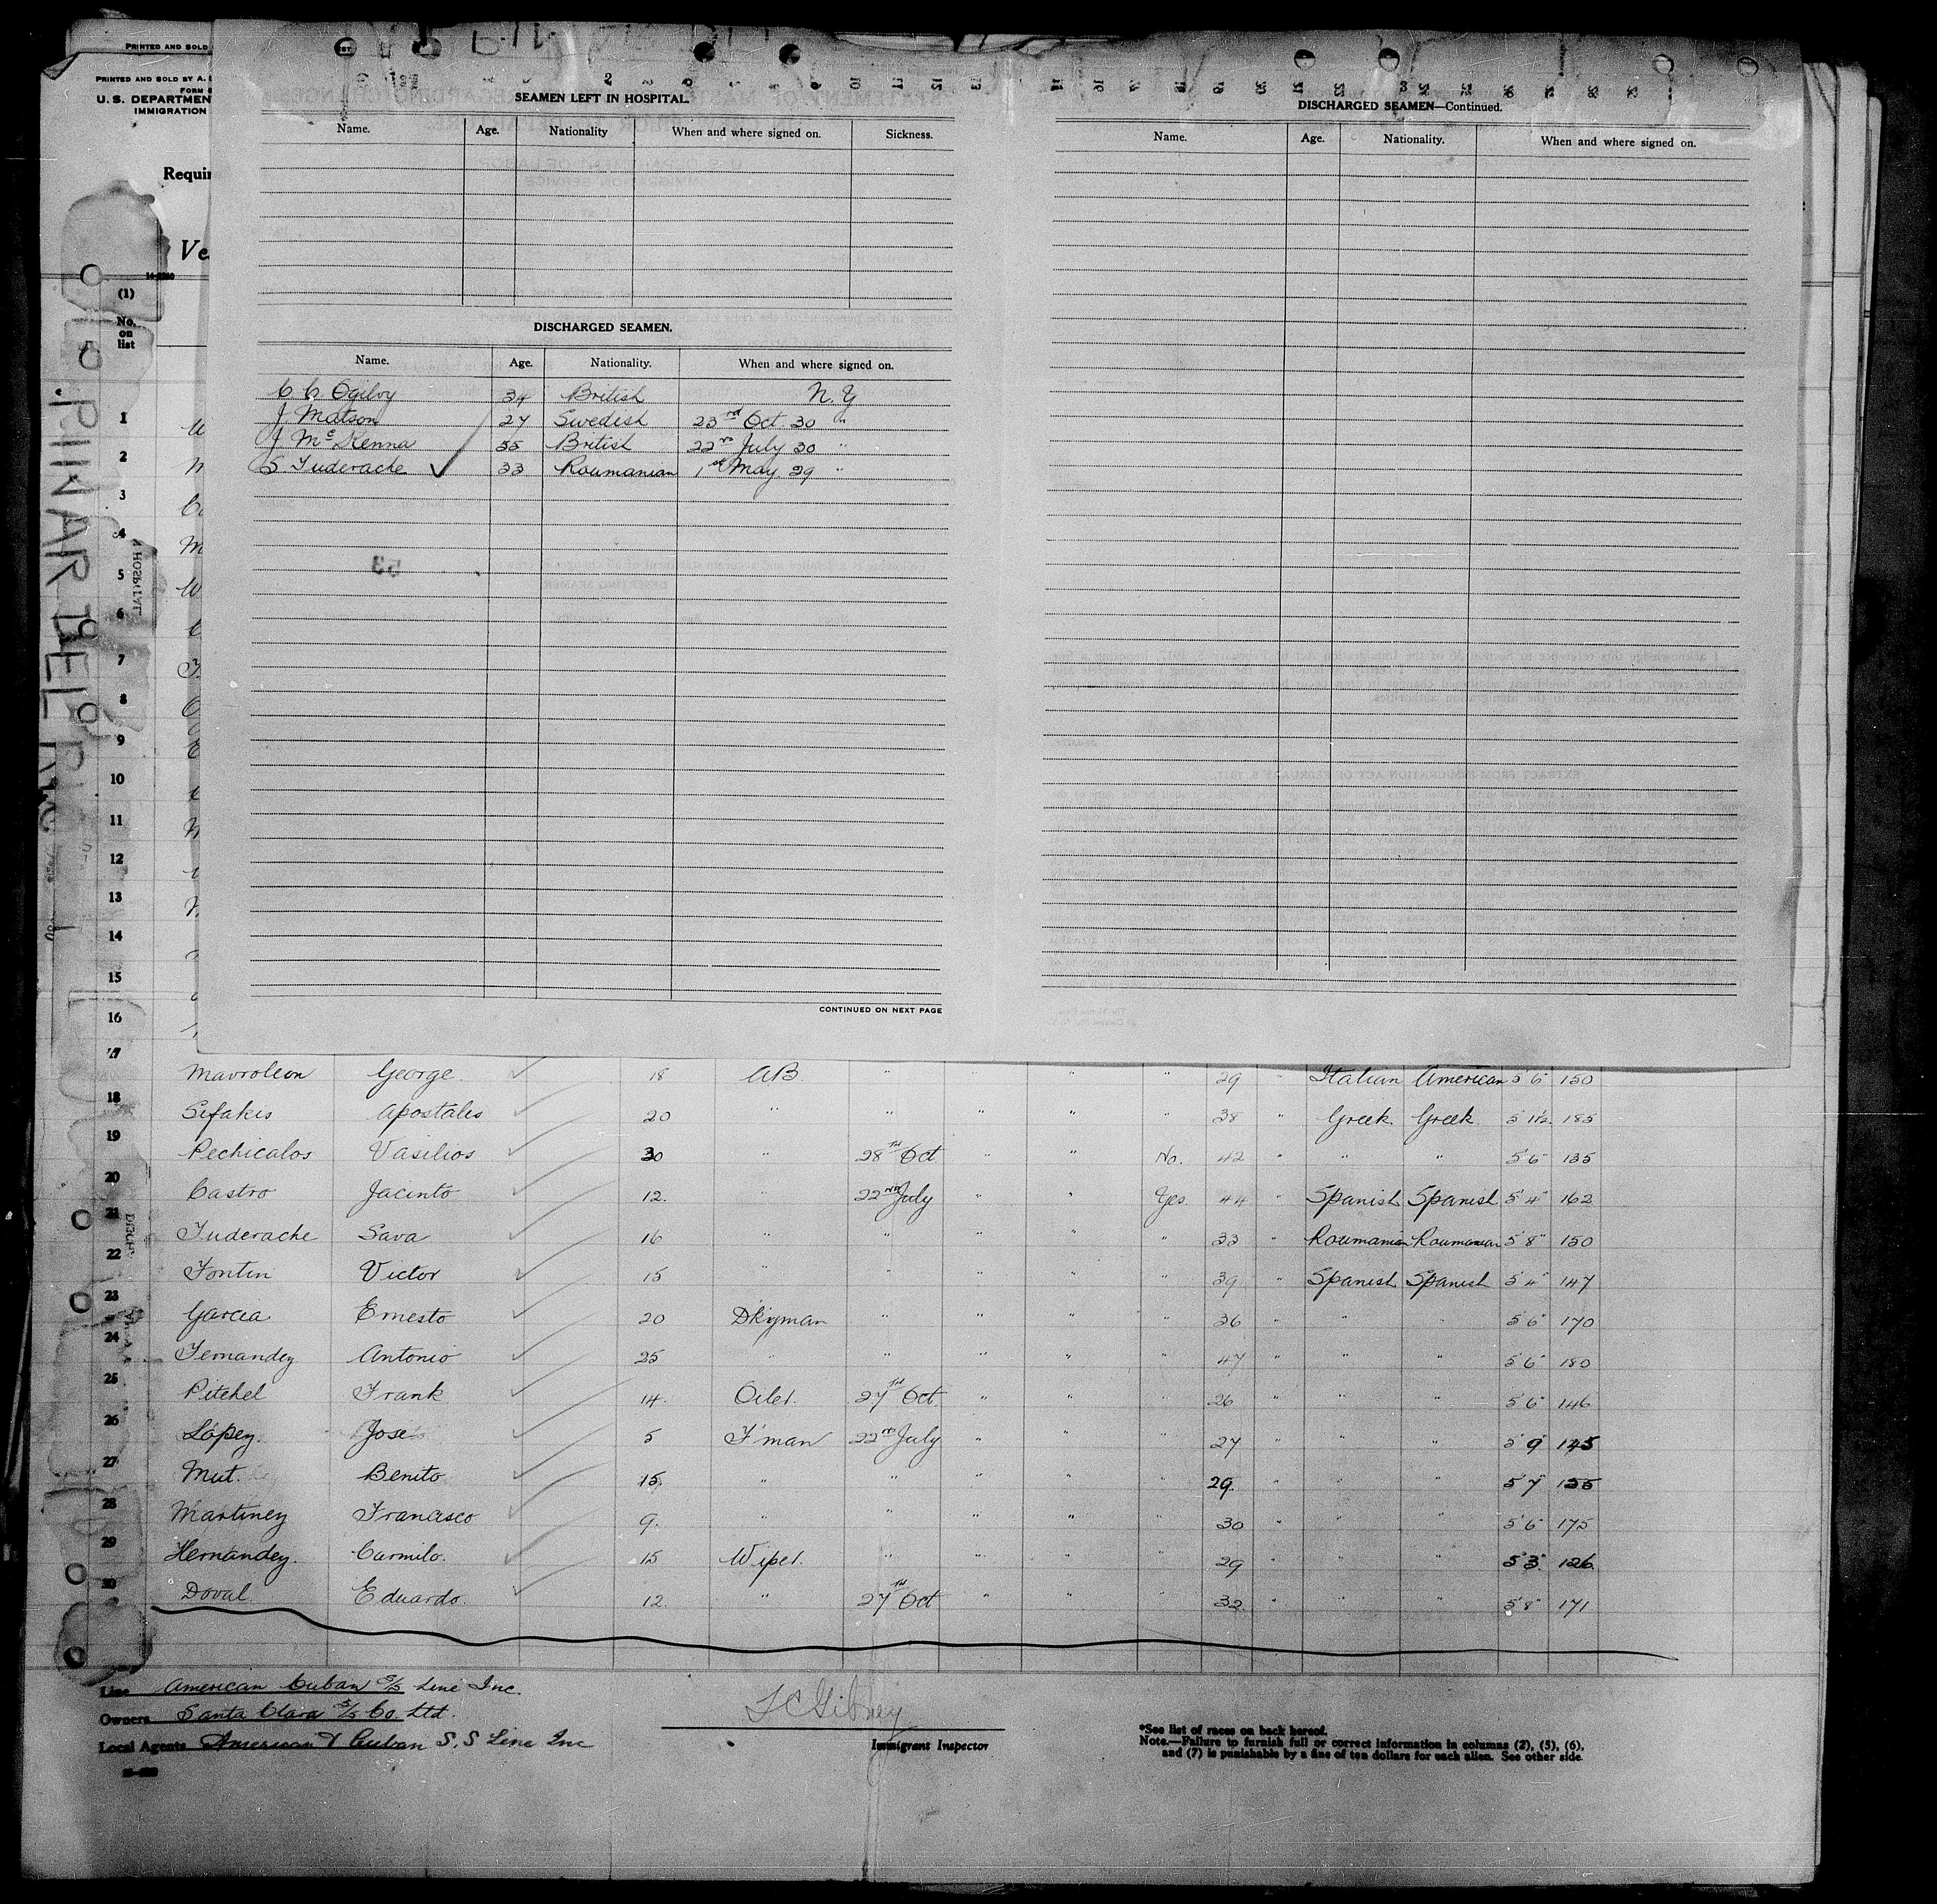 PRINTED AND SOLD
PRINTED AND SOLD BY A.
FORM
U. S. DEPARTMENT
IMMIGRATION
Requir
Ve
(1)
No. on list
PINAR DEL RIO
SEAMEN LEFT IN HOSPITAL.
Name. Age. Nationality When and where signed on. Sickness.
DISCHARGED SEAMEN.
Name. Age. Nationality. When and where signed on.
C C Ogilvy 34 British N.Y
J Matson 27 Swedish 23rd Oct. 30 "
J McKenna 35 British 22nd July 30 "
S Tuderache ✓ 33 Roumanian 1st May 29 "
CONTINUED ON NEXT PAGE
DISCHARGED SEAMEN—Continued.
Name. Age. Nationality. When and where signed on.
1
2
3
4
5
6
7
8
9
10
11
12
13
14
15
16
17 Mavroleon George 18 AB. " " " " 29 " Italian American 5'6" 150
18 Sifakis Apostales 20 " " " " " 38 " Greek Greek 5'11½ 185
19 Pechicalos Vasilios 30 " 28th Oct " " No. 42 " " " 5'6" 135
20 Castro Jacinto 12. " 22nd July " " Yes 44 " Spanish Spanish 5'4" 162
21 Tuderache Sava 16 " " " " " 33 " Roumanian Roumanian 5'8" 150
22 Fontin Victor 15 " " " " " 39 " Spanish Spanish 5'4" 147
23 Garcia Ernesto 20 Dkyman " " " " 36 " " " 5'6" 170
24 Fernandez Antonio 25 " " " " " 47 " " " 5'6" 180
25 Pitchel Frank 14. Oiler 27th Oct. " " " 26 " " " 5'6" 146
26 Lopez. Jose 5 F'man 22nd July " " " 27 " " " 5'9" 145
27 Mut. Benito 15. " " " " " 29. " " " 5'7" 155
28 Martinez Francisco 9. " " " " " 30 " " " 5'6" 175
29 Hernandez. Carmilo. 15 Wiper " " " " 29 " " " 5'3" 126
30 Doval Eduardo. 12. " 27th Oct " " " 32. " " " 5'8" 171
Line American Cuban S/S Line Inc.
Owners Santa Clara S/S Co. Ltd.
Local Agents American & Cuban S.S Line Inc
Immigrant Inspector
*See list of races on back hereof.
Note.—Failure to furnish full or correct information in columns (2), (5), (6),
and (7) is punishable by a fine of ten dollars for each alien. See other side.